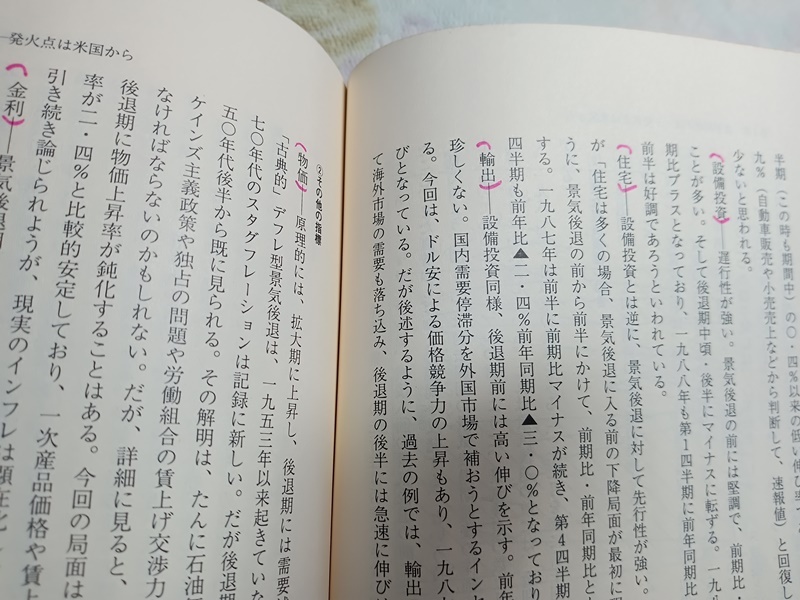 半期（この時も期間中）の〇・四％以来の低い伸び率で
九％（自動車販売や小売売上などから判断して、速報値）と回復し
少ないと思われる。
（設備投資）──遅行性が強い。景気後退の前には堅調で、前期比・
ことが多い。そして後退期中頃・後半にマイナスに転ずる。一九
期比プラスとなっており、一九八八年も第1四半期に前年同期比
前半は好調であろうといわれている。
（住宅）──設備投資とは逆に、景気後退に対して先行性が強い。
が「住宅は多くの場合、景気後退に入る前の下降局面が最初に現
うに、景気後退の前から前半にかけて、前期比・前年同期比と
する。一九八七年は前半に前期比マイナスが続き、第4四半期
四半期も前年比▲二・四％前年同期比▲三・〇％となっており
（輸出）──設備投資同様、後退期前には高い伸びを示す。前年
珍しくない。国内需要停滞分を外国市場で補おうとするインセ
る。今回は、ドル安による価格競争力の上昇もあり、一九八
びとなっている。だが後述するように、過去の例では、輸出
て海外市場の需要も落ち込み、後退期の後半には急速に伸び
②その他の指標
（物価）──原理的には、拡大期に上昇し、後退期には需要
「古典的」デフレ型景気後退は、一九五三年以来起きていな
七〇年代のスタグフレーションは記録に新しい。だが後退
五〇年代後半から既に見られる。その解明は、たんに石油
ケインズ主義政策や独占の問題や労働組合の賃上げ交渉力
なければならないのかもしれない。だが、詳細に見ると、
後退期に物価上昇率が鈍化することはある。今回の局面は
率が二・四％と比較的安定しており、一次産品価格や賃上
引き続き論じられようが、現実のインフレは顕在化し
（金利）──景気後退
発火点は米国から